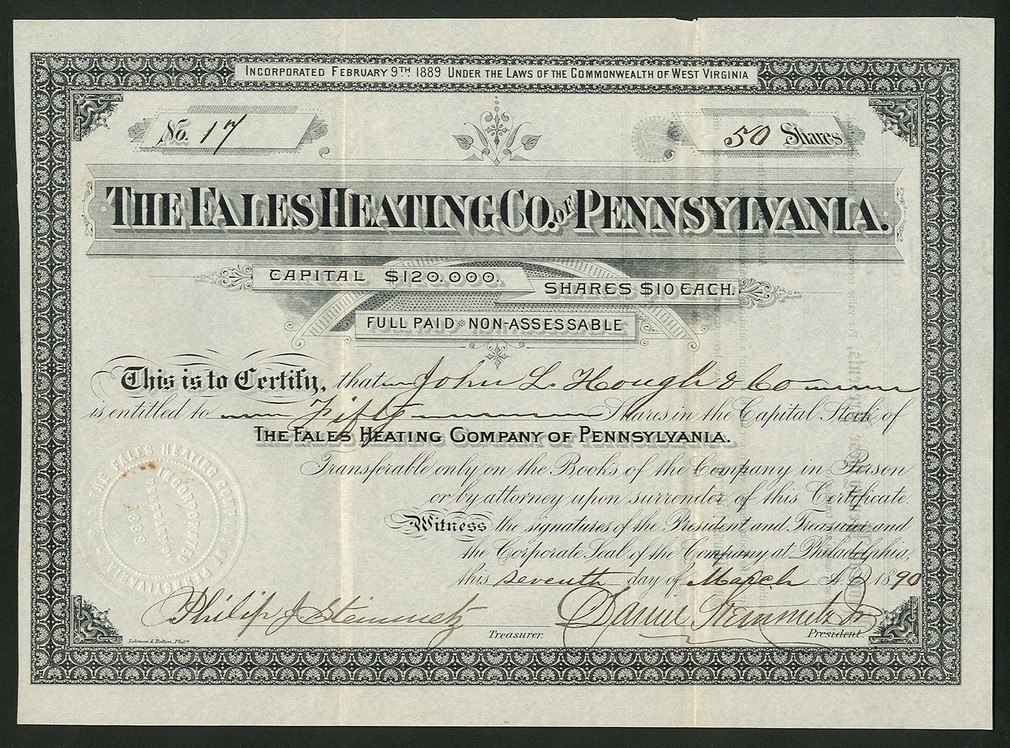 INCORPORATED FEBRUARY 9TH 1889 UNDER THE LAWS OF THE COMMONWEALTH OF WEST VIRGINIA
No. 17
50 Shares
THE FALES HEATING CO. OF PENNSYLVANIA.
CAPITAL $120.000.
SHARES $10 EACH.
FULL PAID NON-ASSESSABLE
This is to Certify, that John L. Hough & Co
is entitled to Fifty Shares in the Capital Stock of
THE FALES HEATING COMPANY OF PENNSYLVANIA.
Transferable only on the Books of the Company in Person
or by attorney upon surrender of this Certificate.
Witness the signatures of the President and Treasurer and
the Corporate Seal of the Company at Philadelphia,
this seventh day of March A.D. 1890
THE FALES HEATING COMPANY OF PENNSYLVANIA
INCORPORATED
FEBRUARY
Philip J Steinmetz
Treasurer.
Daniel Steinmetz Jr
President.
Lehman & Bolton, Phila.